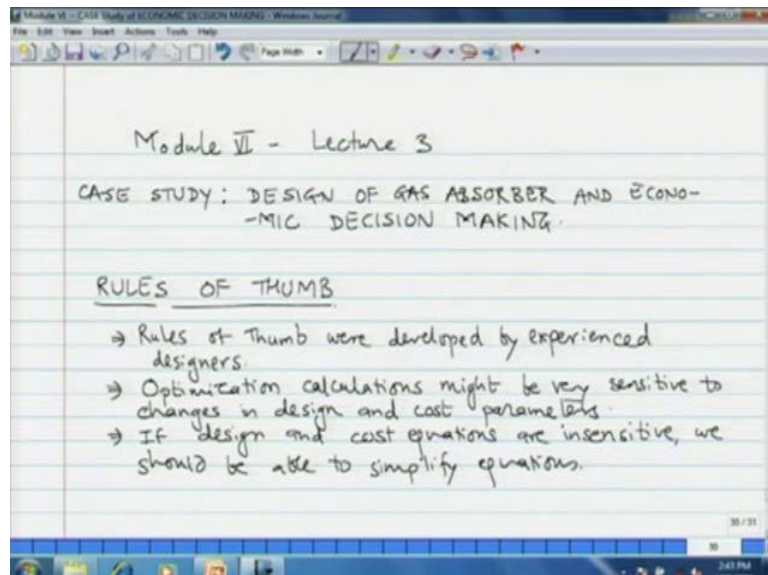 Module VI - CASE Study of ECONOMIC DECISION MAKING - Windows Journal
File Edit View Insert Actions Tools Help
Page Width
Module VI - Lecture 3
CASE STUDY : DESIGN OF GAS ABSORBER AND ECONO-
-MIC DECISION MAKING.
RULES OF THUMB
⇒ Rules of Thumb were developed by experienced
designers.
⇒ Optimization calculations might be very sensitive to
changes in design and cost parameters.
⇒ If design and cost equations are insensitive, we
should be able to simplify equations.
30 / 31
30
2:43 PM